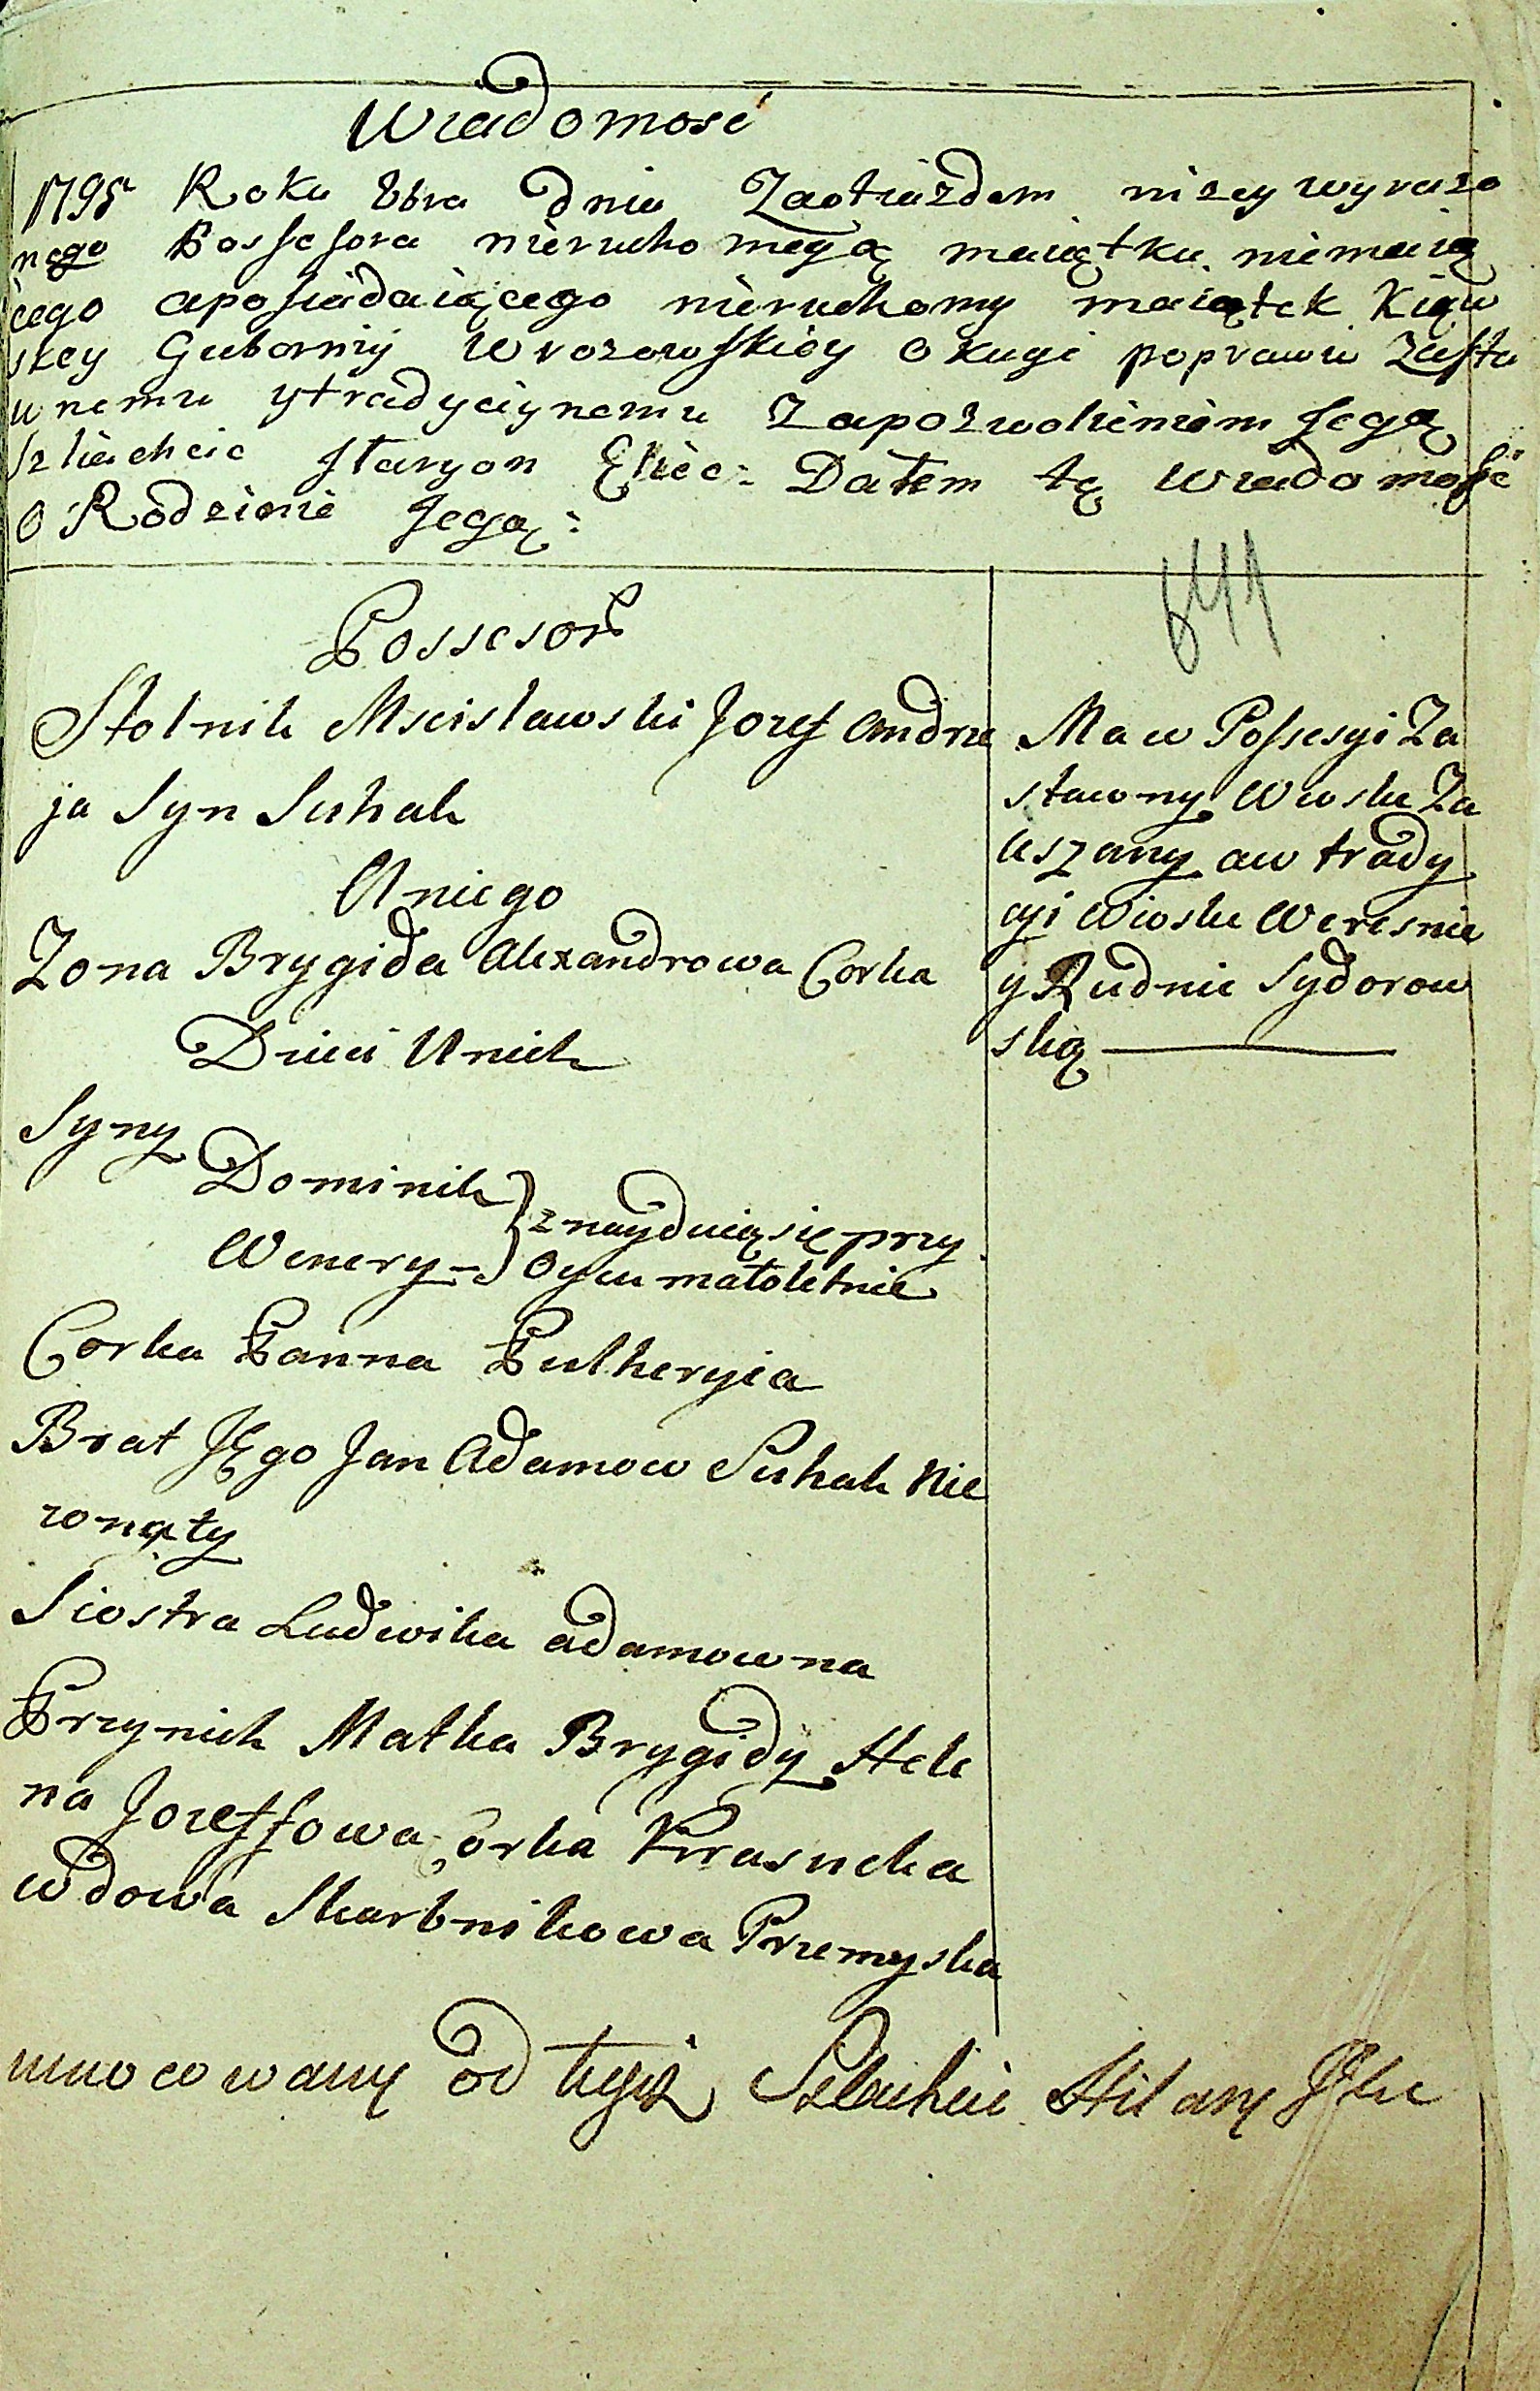 Wiadomosć
1795 Roku 8bra dnia Zaotiazdem nizey wyrazo
nego Possesora nieruchomegą maiątku niemaią
cego aposiadaiącego nieruchomy maiątek Kiąw
skey Gubornij Wrozowskiey Okugi poprawu Zasta
wnemu ytradycijnemu Zapozwolieniem Jegą
Szliachcic Jtaryon Ellec: Dałem tę Wiadomość
O Rodzienie Jegą:
641
Possesor
Stolnik Mscisławski Jozef Andrze
ja Syn Suhak
Uniego
Zona Brygida Alexandrowa Corka
Dzieci Unich
Syny
Dominik
Wenery
znayduią się przy
Oycu małoletnie
Corka Panna Pulheryia
Brat JEgo Jan Adamow Suhak Nie
zonąty
Siostra Ludwika adamowna
Przynich Matka Brygidy Hele
na Jozeffowa Corka Krasucka
wdowa Skarbnikowa Przemyska
Ma w Possesyi Za
stawny Wioske Za
leszany aw trady
cyi Wioske Weresnie
y Rudnie Sydorow
ską
umocowany od tegoż Szlachcic Hilary